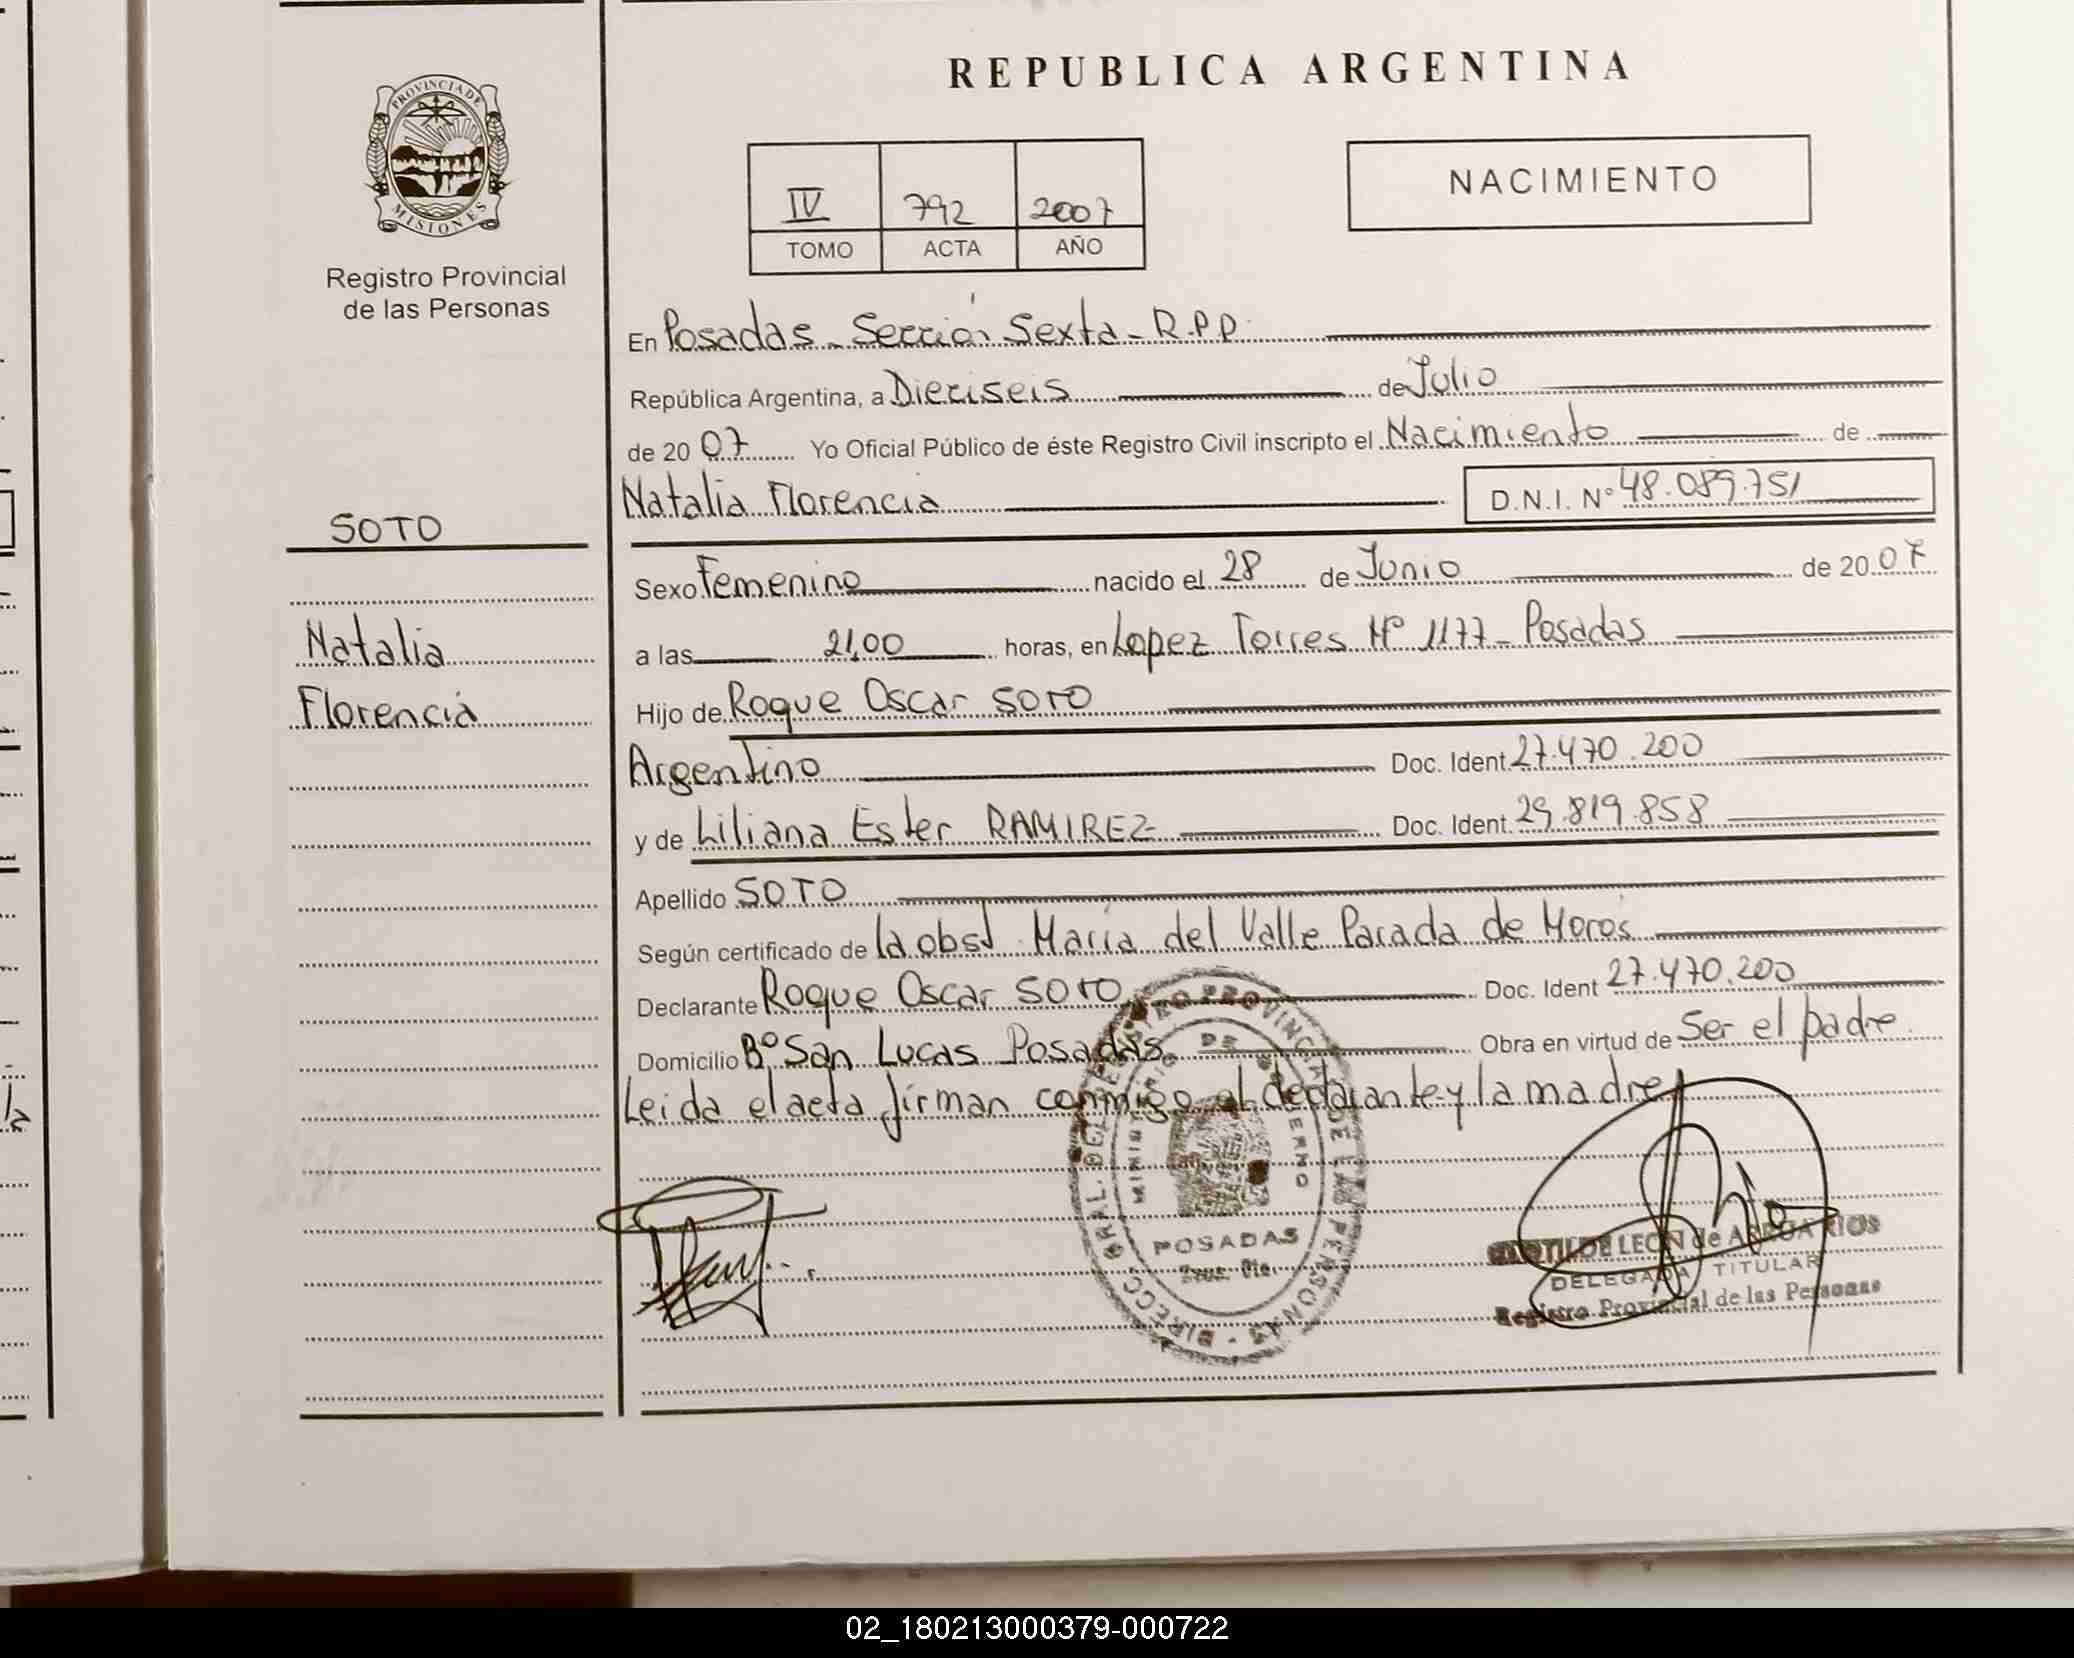 REPUBLICA ARGENTINA
PROVINCIA DE
MISIONES
Registro Provincial
de las Personas
IV 792 2007
TOMO ACTA AÑO
NACIMIENTO
En Posadas - Sección Sexta - R.P.P.
República Argentina, a Dieciseis de Julio
de 2007 Yo Oficial Público de éste Registro Civil inscripto el Nacimiento de
Natalia Florencia D.N.I. Nº 48.089.751
SOTO
Natalia
Florencia
Sexo Femenino nacido el 28 de Junio de 2007
a las 21,00 horas, en Lopez Torres Nº 1177 - Posadas
Hijo de Roque Oscar SOTO
Argentino Doc. Ident. 27.470.200
y de Liliana Ester RAMIREZ Doc. Ident. 29.819.858
Apellido SOTO
Según certificado de la obst. María del Valle Parada de Moros
Declarante Roque Oscar SOTO Doc. Ident 27.470.200
Domicilio Bº San Lucas Posadas Obra en virtud de Ser el padre
Leida el acta firman conmigo el declarante y la madre
DIRECC. GRAL. DEL REGISTRO PROVINCIAL DE LAS PERSONAS
MINISTERIO DE GOBIERNO
POSADAS
LEON de
DELEGADA TITULAR
Registro Provincial de las Personas
02_180213000379-000722